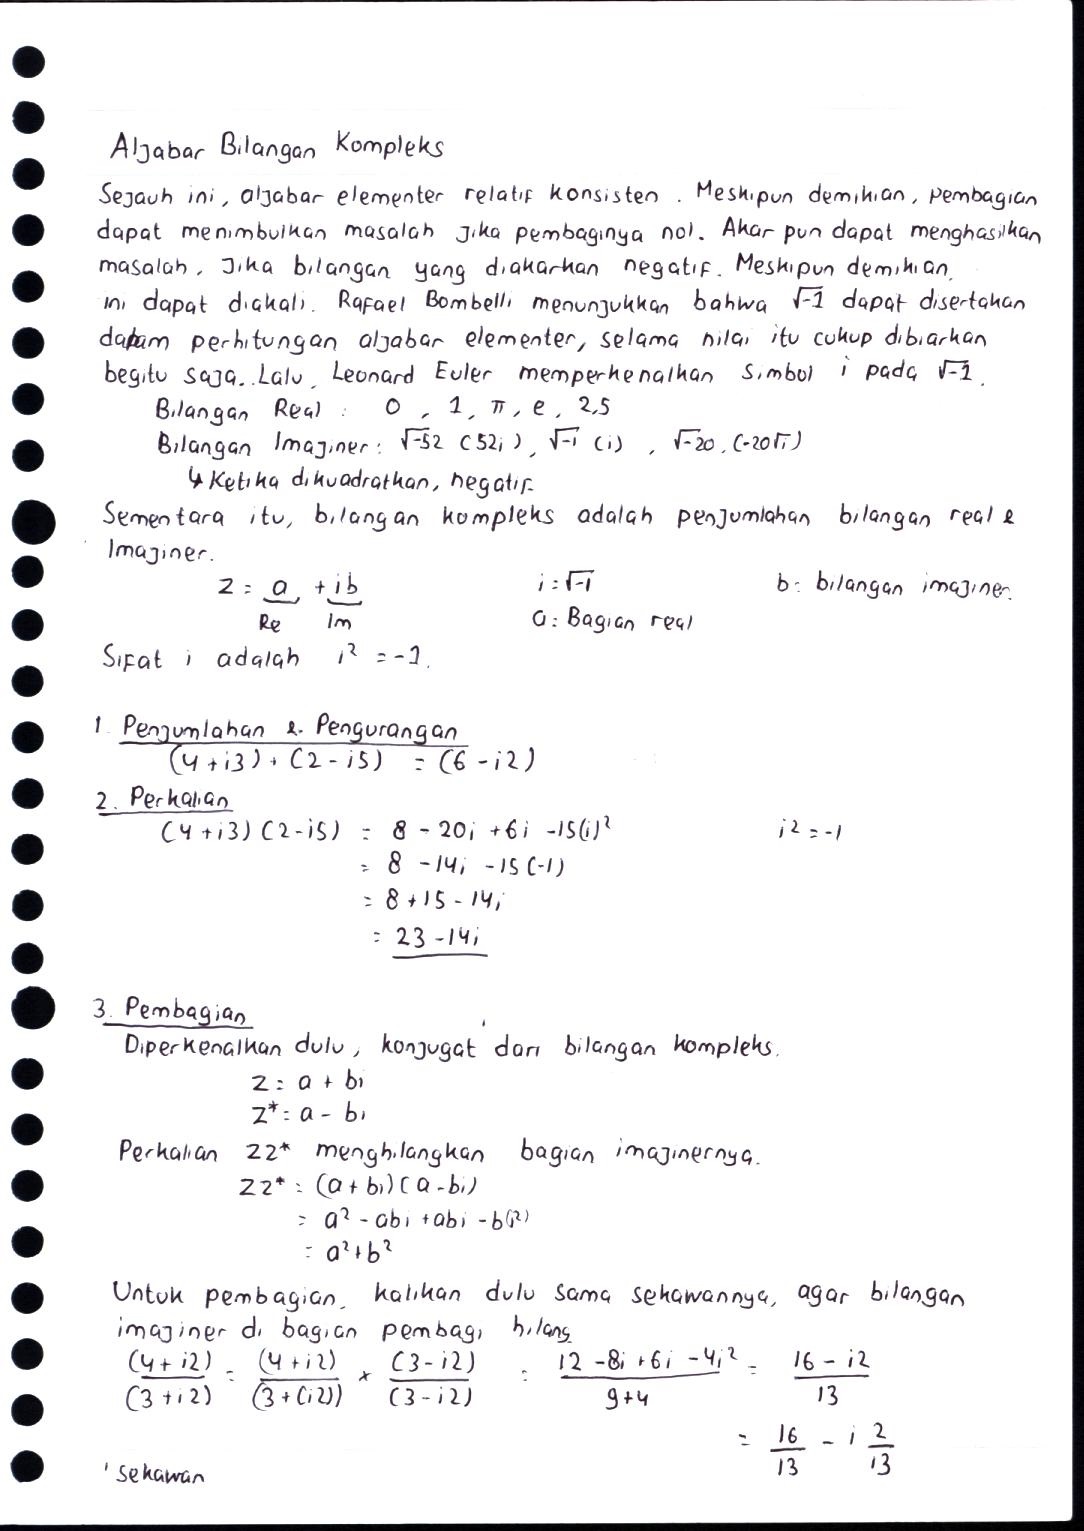 Aljabar Bilangan Kompleks
Sejauh ini, aljabar elementer relatif konsisten. Meskipun demikian, pembagian
dapat menimbulkan masalah jika pembaginya nol. Akar pun dapat menghasilkan
masalah, Jika bilangan yang diakarkan negatif. Meskipun demikian,
ini dapat diakali. Rafael Bombelli menunjukkan bahwa √-1 dapat disertakan
dalam perhitungan aljabar elementer, selama nilai itu cukup dibiarkan
begitu saja. Lalu, Leonard Euler memperkenalkan simbol i pada √-1.
Bilangan Real : 0, 1, π, e, 2,5
Bilangan Imajiner: √-52 (52i), √-1 (i), √-20, (-20√i)
↳ Ketika dikuadratkan, negatif.
Sementara itu, bilangan kompleks adalah penjumlahan bilangan real &
Imajiner.
z = a + ib i = √-1 b: bilangan imajiner.
Re Im a: Bagian real
Sifat i adalah i² = -1.
1. Penjumlahan & Pengurangan
(4 + i3) + (2 - i5) = (6 - i2)
2. Perkalian
(4 + i3) (2 - i5) = 8 - 20i + 6i - 15(i)² i² = -1
= 8 - 14i - 15 (-1)
= 8 + 15 - 14i
= 23 - 14i
3. Pembagian
Diperkenalkan dulu, konjugat' dari bilangan kompleks.
z = a + bi
z* = a - bi
Perkalian zz* menghilangkan bagian imajinernya.
zz* = (a + bi)(a - bi)
= a² - abi + abi - b(i²)
= a² + b²
Untuk pembagian, kalikan dulu sama sekawannya, agar bilangan
imajiner di bagian pembagi hilang
(4 + i2)/(3 + i2) = (4 + i2)/(3 + (i2)) × (3 - i2)/(3 - i2) = (12 - 8i + 6i - 4i²)/(9 + 4) = (16 - i2)/13
= 16/13 - i 2/13
' sekawan